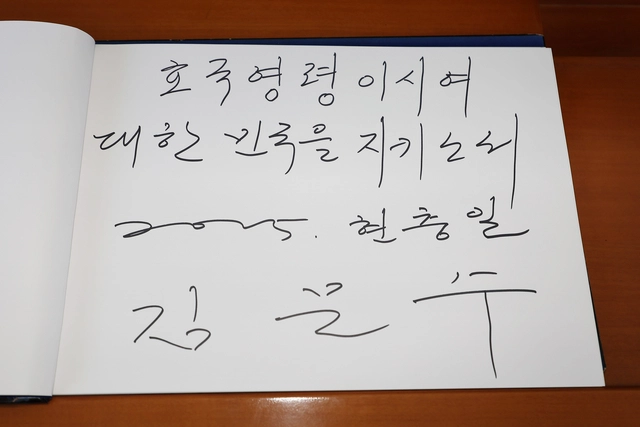 호국영령이시여
대한민국을 지키소서
2025. 현충일
김문수